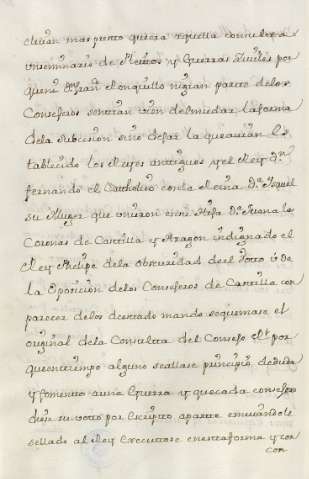 dirían mas presto quiera aquella consulta era
un seminario de Pleitos y Guerras Civiles por
que ni el Gran Conquillo ni gran parte delos
Consejeros sentian vien de mudar la forma
de la subcesion sino dejar la que avian Es
tablecido los Reyes antiguos y el Rey Dn
fernando el Catholico con la Reina Da Isabel
su Muger que unieron en su Hija Da Juana las
Coronas de Castilla y Aragon indignado el
Rey Phelipe de la obscuridad de el Voto ô de
la Oposicion de los Consejeros de Castilla con
parecer de los de estado mando se quemase el
original de la Consulta del Consejo Rl por
que en tiempo alguno se allase principio de duda
y fomento a una Guerra y que cada consejero
diese su voto por Escripto aparte embiandole
sellado al Rey Executose en esta forma y con
con